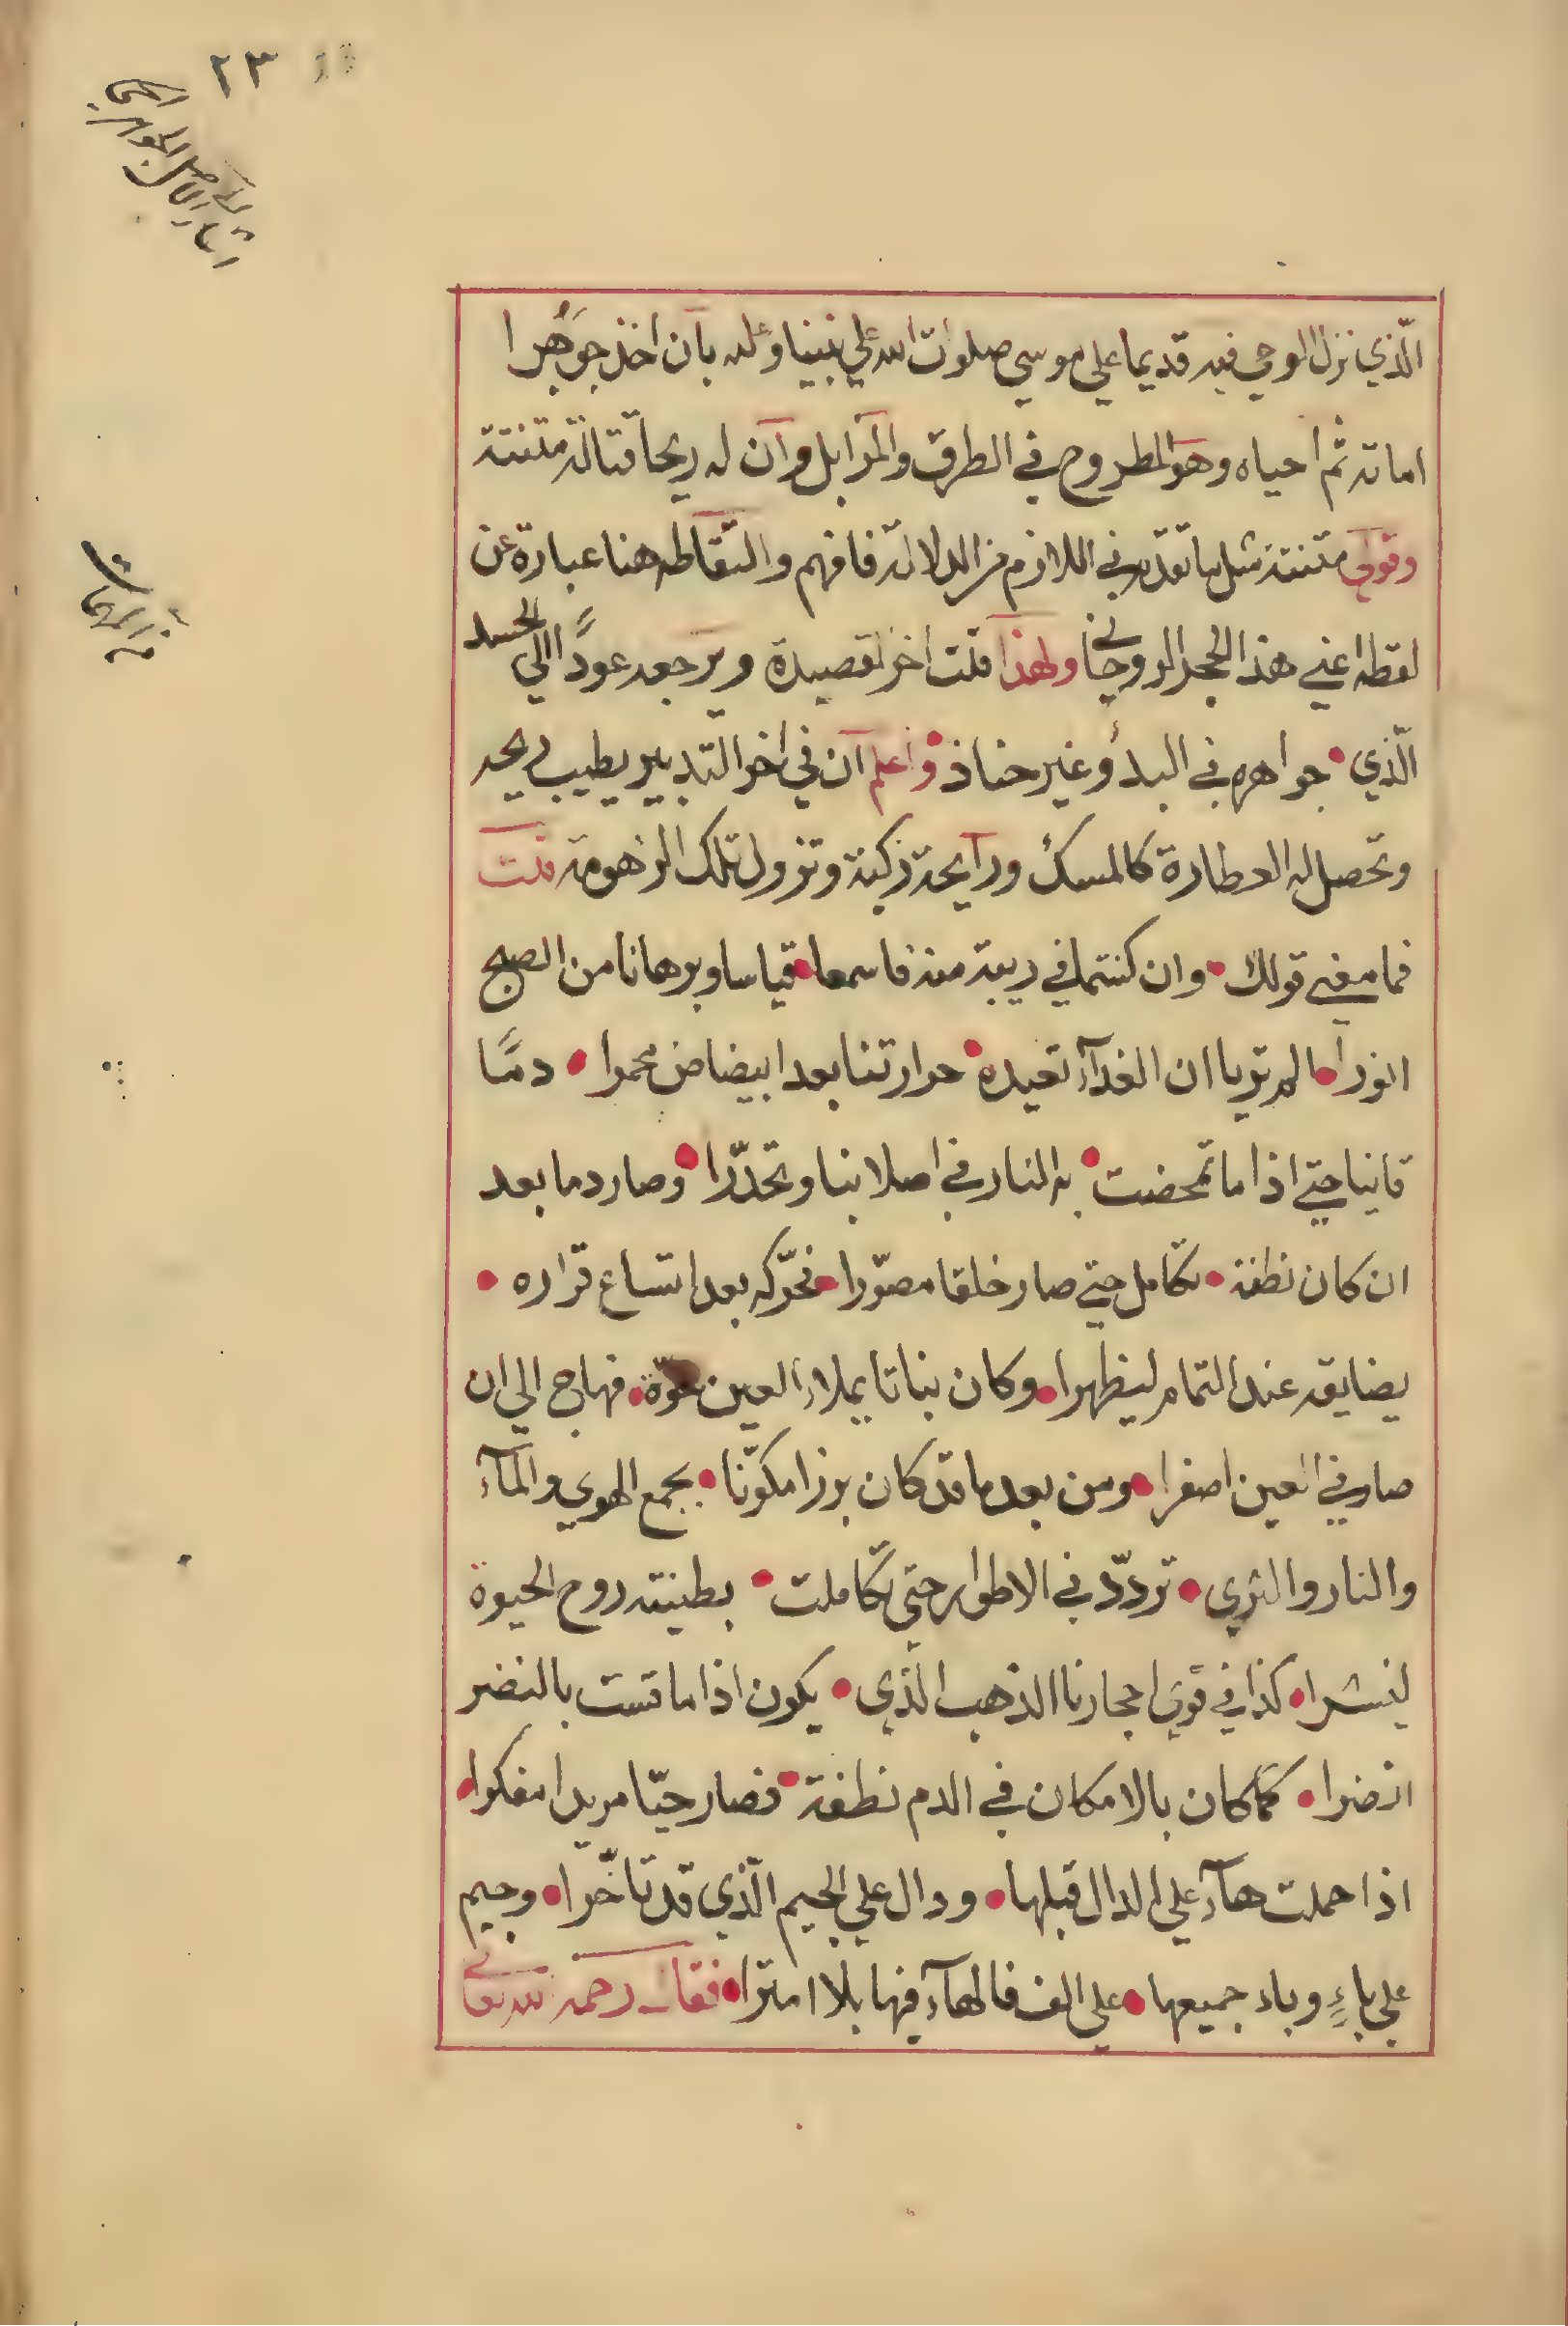 ٢٣
الّذي نزل الوحي فيه قديما علي موسي صلوات الله علي نبينا وعليه بان اخذ جوهرا
اماته ثم احياه وهو المطروح في الطرق والمزابل وان له ريحا قتالة متنتنة
وقولي متنتنة مثل ما تقدم في اللازم من الدلالة فافهم والتقاطه هنا عبارة عن
لقطه اعني هذا الحجر الروحاني ولهذا قلت اخر القصيدة ويرجعه عودًا الي الجسد
الّذي • جواهره في البدأ وغير حناذ • واعلم ان في اخر التدبير يطيب ريحه
وتحصل له العطارة كالمسك ورايحة زكية وتزول تلك الزهومة قلت
فما معني قولك • وان كنتما في ريبة منه فاسمعا • قياسا وبرهانا من الصبح
انورا • الم تريا ان الغدآء تعيده • حرارتنا بعد ابيضاض محمرا • دمًا
قانيا حتي اذا ما تمخضت • به النار في اصلابنا وتحدّرا • وصار دما بعد
ان كان نطفة • تكامل حتي صار خلقا مصوّرا • فحرّكه بعد اتساع قراره •
يضايقه عند التمام ليظهرا • وكان نباتا يملاء العين حوّة • فهاج الي ان
صار في العين اصفرا • ومن بعد ما قد كان بزرا مكوّنا • بجمع الهوي والمآء
والنار والثري • تردّد في الاطوار حتي تكاملت • بطينته روح الحيوة
لينشرا • كذا في قوي احجارنا الذهب الّذي • يكون اذا ما قست بالنضر
انضرا • كما كان بالامكان في الدم نطفة • فصار حيّا مريدا مفكرا •
اذا حملت هآء علي الدال قبلها • ودال علي الجيم الّذي قد تاخّرا • وجيم
علي باءٍ وباء جميعها • علي الف فالهآء فيها بلا امترا • فقال رحمه الله تعالي